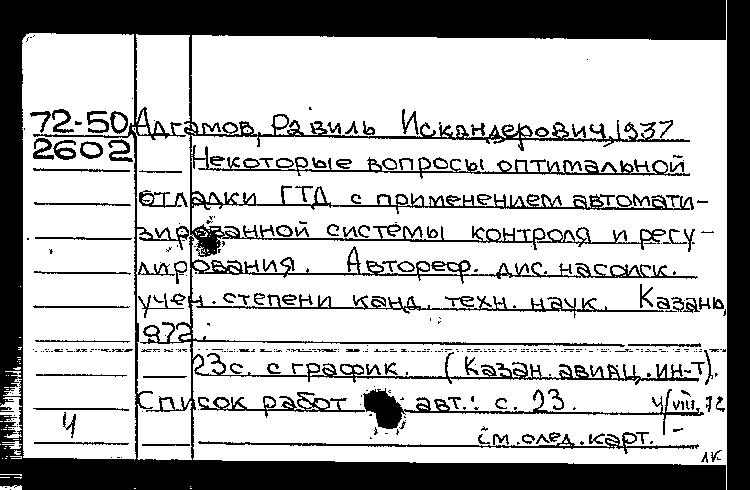 72-50 Адгамов, Равиль Искандерович, 1937
2602 Некоторые вопросы оптимальной
отладки ГТД с применением автомати-
зированной системы контроля и регу-
лирования. Автореф. дис. на соиск.
учен. степени канд. техн. наук. Казань,
1972.
23 с. с график. (Казан. авиац. ин-т).
Список работ авт.: с. 23. 4/VIII.72
ч см. след. карт.